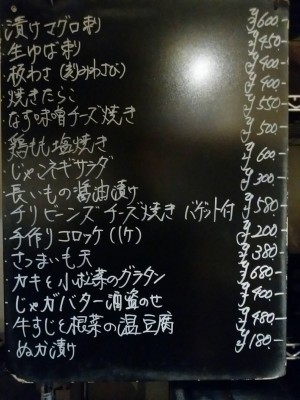 漬けマグロ刺 ¥600-
生ゆば刺 ¥450-
板わさ(刻みわさび) ¥400-
焼きたらこ ¥400-
なす味噌チーズ焼き ¥550
鶏もも塩焼き ¥500-
じゃこネギサラダ ¥600-
長いもの醤油漬け ¥300-
チリビーンズチーズ焼き バゲット付 ¥580-
手作りコロッケ(1ケ) ¥200-
さつまいも天 ¥380-
カキと小松菜のグラタン ¥680-
じゃがバター酒盗のせ ¥400-
牛すじと根菜の温豆腐 ¥480-
ぬか漬け ¥180-